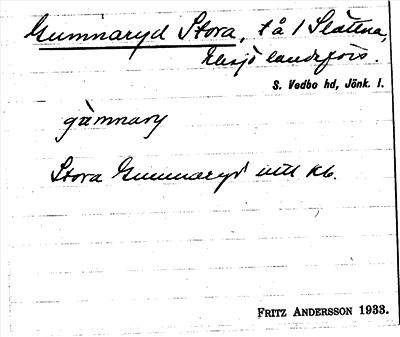 Gummaryd Stora, t å 1 Slättna,
Eksjö landsförs.
S. Vedbo hd, Jönk. l.
gùmmary
Stora Gummaryd uttl kb.
FRITZ ANDERSSON 1933.